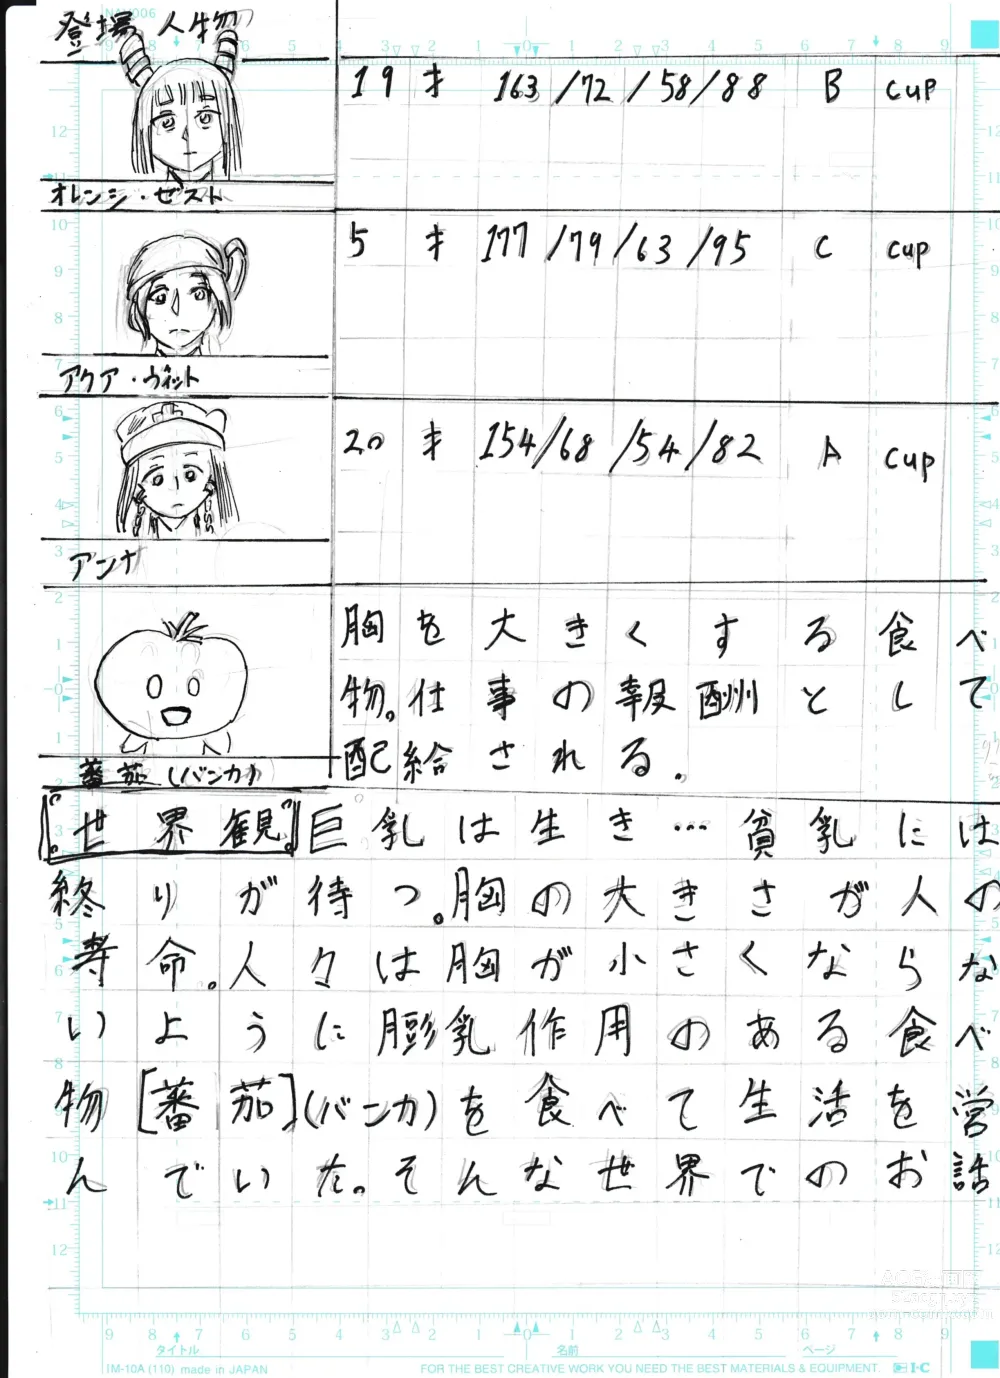 登場人物
19才 163/72/58/88 B cup
オレンジ・ゼスト
5才 177/79/63/95 C cup
アクア・ヴィット
20才 154/68/54/82 A cup
アンナ
胸を大きくする食べ
物。仕事の報酬として
配給される。
蕃茄(バンカ)
『世界観』巨乳は生き…貧乳には
終りが待つ。胸の大きさが人の
寿命。人々は胸が小さくならな
いように膨乳作用のある食べ
物[蕃茄](バンカ)を食べて生活を営
んでいた。そんな世界でのお話
タイトル 名前 ページ
IM-10A (110) made in JAPAN FOR THE BEST CREATIVE WORK YOU NEED THE BEST MATERIALS & EQUIPMENT. I·C